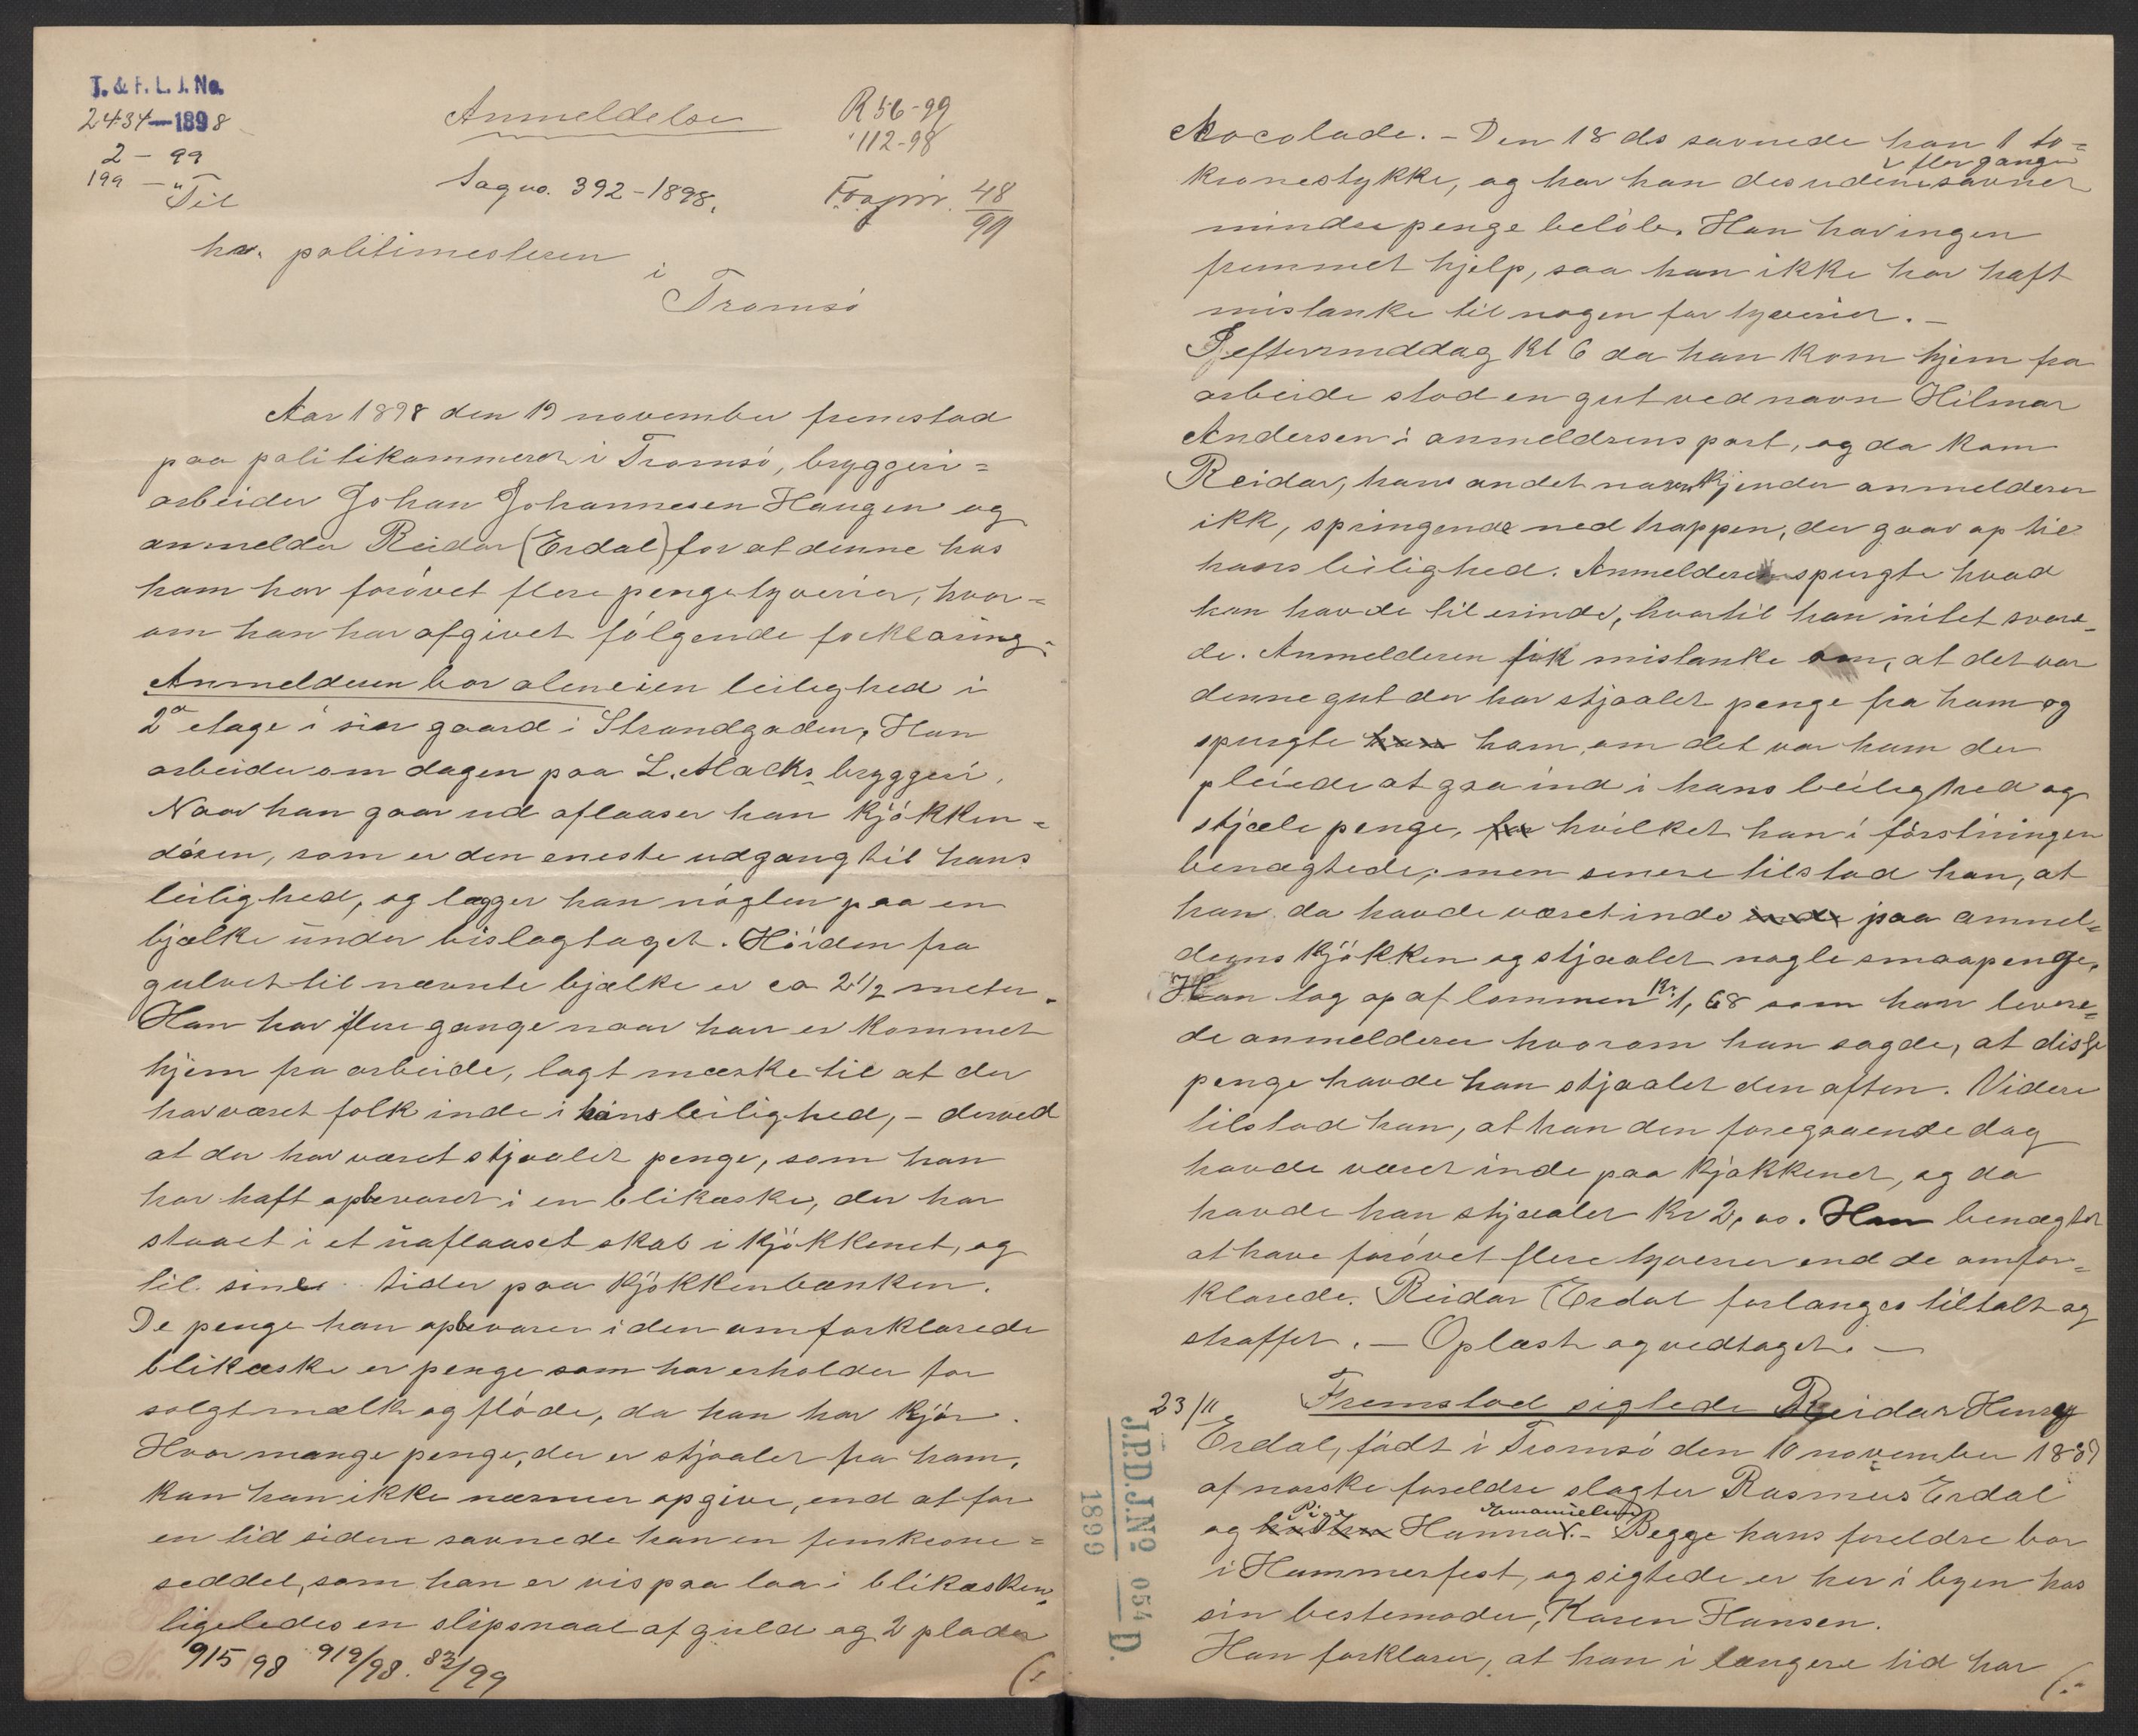 T. & F. L. J. No.
2434—1898
2 — 99
199 — "
Anmeldelse
Sag no. 392-1898.
R 56-99
"112-98
Forpr. 48/99
Til
hr. politimesteren
i
Tromsö
Aar 1898 den 19 november fremstod
paa politikammeret i Tromsö, bryggeri=
arbeider Johan Johannesen Haugen og
anmelder Reidar (Erdal) for at denne hos
ham har forövet flere pengetyverier, hvor=
om han har afgivet fölgende forklaring:
Anmelderen bor alene i en leilighed i
2den etage i sin gaard i Strandgaden. Han
arbeider om dagen paa L. Macks bryggeri.
Naar han gaar ud aflaaser han kjökken=
dören, som er den eneste udgang til hans
leilighed, og lægger han nöglen paa en
bjælke under bislagtaget. Höiden fra
gulvet til nævnte bjælke er ca 2 1/2 meter.
Han har flere gange naar han er kommet
hjem fra arbeide, lagt mærke til at der
har været folk inde i hans leilighed, – derved
at der har været stjaalet penge, som han
har haft opbevaret i en blikæske, der har
staaet i et uaflaaset skab i kjökkenet, og
til sine tider paa kjökkenbænken.
De penge han opbevarer i den omforklarede
blikæske er penge som han erholder for
solgt mælk og flöde, da han har kjör.
Hvor mange penge, der er stjaalet fra ham,
kan han ikke nærmere opgive, end at for
en tid siden savnede han en femkrone=
seddel, som han er vis paa laa i blikæsken,
ligeledes en slipsnaal af guld og 2 plader
915/98 919/98. 83/99
(:
chocolade. – Den 18 ds savnede han 1 to=
kronestykke, og har han desuden flere gange savnet
mindre pengebelöb. Han har ingen
fremmet hjelp, saa han ikke har haft
mistanke til nogen for tyverier. –
I eftermiddag kl 6 da han kom hjem fra
arbeide stod en gut ved navn Hilmar
Andersen i anmelderens port, og da kom
Reidar, hans andet navn kjender anmelderen
ikk, springende ned trappen, der gaar op til
hans leilighed. Anmelderen spurgte hvad
han havde til erinde, hvortil han intet svare=
de. Anmelderen fik mistanke om, at det var
denne gut der har stjaalet penge fra ham og
spurgte han ham om det var ham der
pleiede at gaa ind i hans leilighed og
stjæle penge, for hvilket han i förstningen
benægtede, men senere tilstod han, at
han da havde været inde inde paa anmel=
derens kjökken og stjaalet nogle smaapenge.
Han tog op af lommen kr. 1,68 som han levere=
de anmelderen hvorom han sagde, at disse
penge havde han stjaalet den aften. Videre
tilstod han, at han den foregaaende dag
havde været inde paa kjökkenet, og da
havde han stjaalet kr 2,00. Han benægter
at have forövet flere tyverier end de omfor=
klarede. Reidar Erdal forlanges tiltalt og
straffet. — Oplæst og vedtaget. —
23/11 Fremstod sigtede Reidar Henry
Erdal, födt i Tromsö den 10 november 1889
af norske foreldre slagter Rasmus Erdal
og hustru Pige Hanna Emanuelsen. – Begge hans foreldre bor
i Hammerfest, og sigtede er her i byen hos
sin bestemoder, Karen Hansen.
Han forklarer, at han i længere tid har
(:
J.P.D.J.No 054 D.
1899